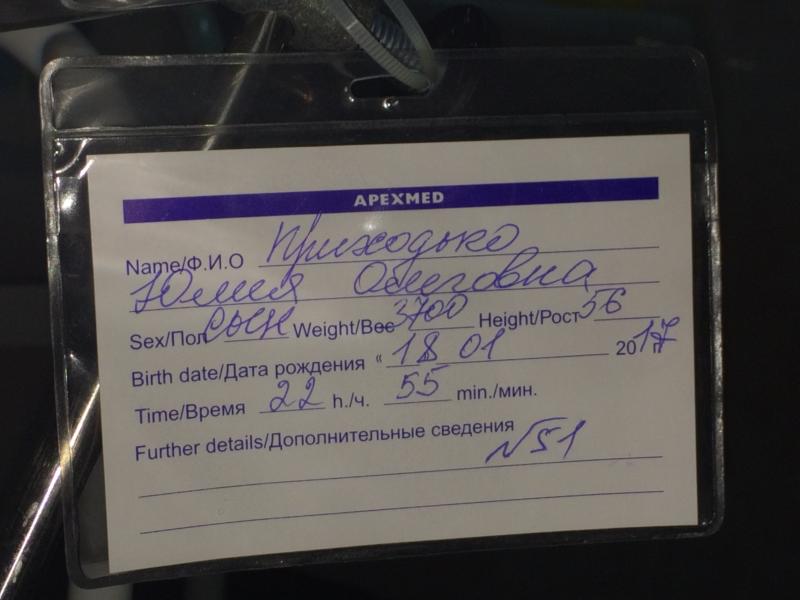 APEXMED
Name/Ф.И.О Приходько
Юлия Олеговна
Sex/Пол сын Weight/Вес 3700 Height/Рост 56
Birth date/Дата рождения « 18 01 2017
Time/Время 22 h./ч. 55 min./мин.
Further details/Дополнительные сведения
№51